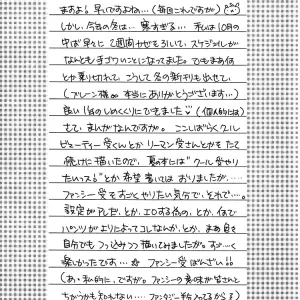 ますよ! 早いですよね…(毎回これですが)
しかし、今年の冬は… 寒すぎる… 私は10月の
中ば早々に2週間カゼをひいて、スケジュールが
なんとも手ごわいことになってました。でもまあ何
とか乗り切れて、こうして冬の新刊も出せて、
(ブレーン様 本当にありがとうございます…)
良い1年のしめくくりにできました (個人的には)
さて、まんがなんですが。ここしばらくクール
ビューティー受くんとかリーマン受さんとかをたて
続けに描いたので、基本には"クール受やり
たいっス!"とか希望者いてはおりましたが……
ファンシー受をすごくやりたい気分で、それで…。
設定がアレだ、とか、エロする為の、とか、何で
パンツがよりによってコレなんか、とか、まあ自を
自分でもつっ込みつつ描いてみましたが。すごーく
楽しかったです…☆ ファンシー受ばんざい!!
(あ、私的に、ですが。ファンシーの意味が皆さんと
ちがうかも知れない…。ファンタジー